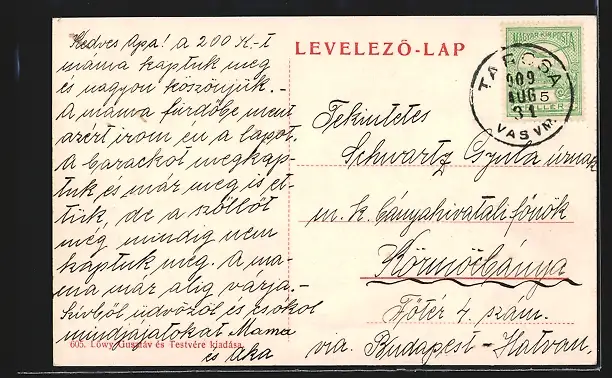 Kedves Apa! a 200 K.-t
máma kaptuk meg
és nagyon köszönjük. -
A mama fürdőbe ment
azért irom én a lapot.
A barackot megkap-
tuk és már meg is et-
tük, de a szőllőt
még mindig nem
kaptuk meg. A ma-
ma már alig várja. -
Szivből üdvözöl és csókol
mindjájatokat Mama
és Aka
605. Lőwy Gusztáv és Testvére kiadása.
LEVELEZŐ-LAP
MAGYAR KIR. POSTA
5
FILLÉR
TARCSA
909
AUG
31
VASVM.
Tekintetes
Schwartz Gyula úrnak
m. k. bányahivatali főnök
Körmöcbánya
Főtér 4. szám.
via. Budapest-Hatvan.